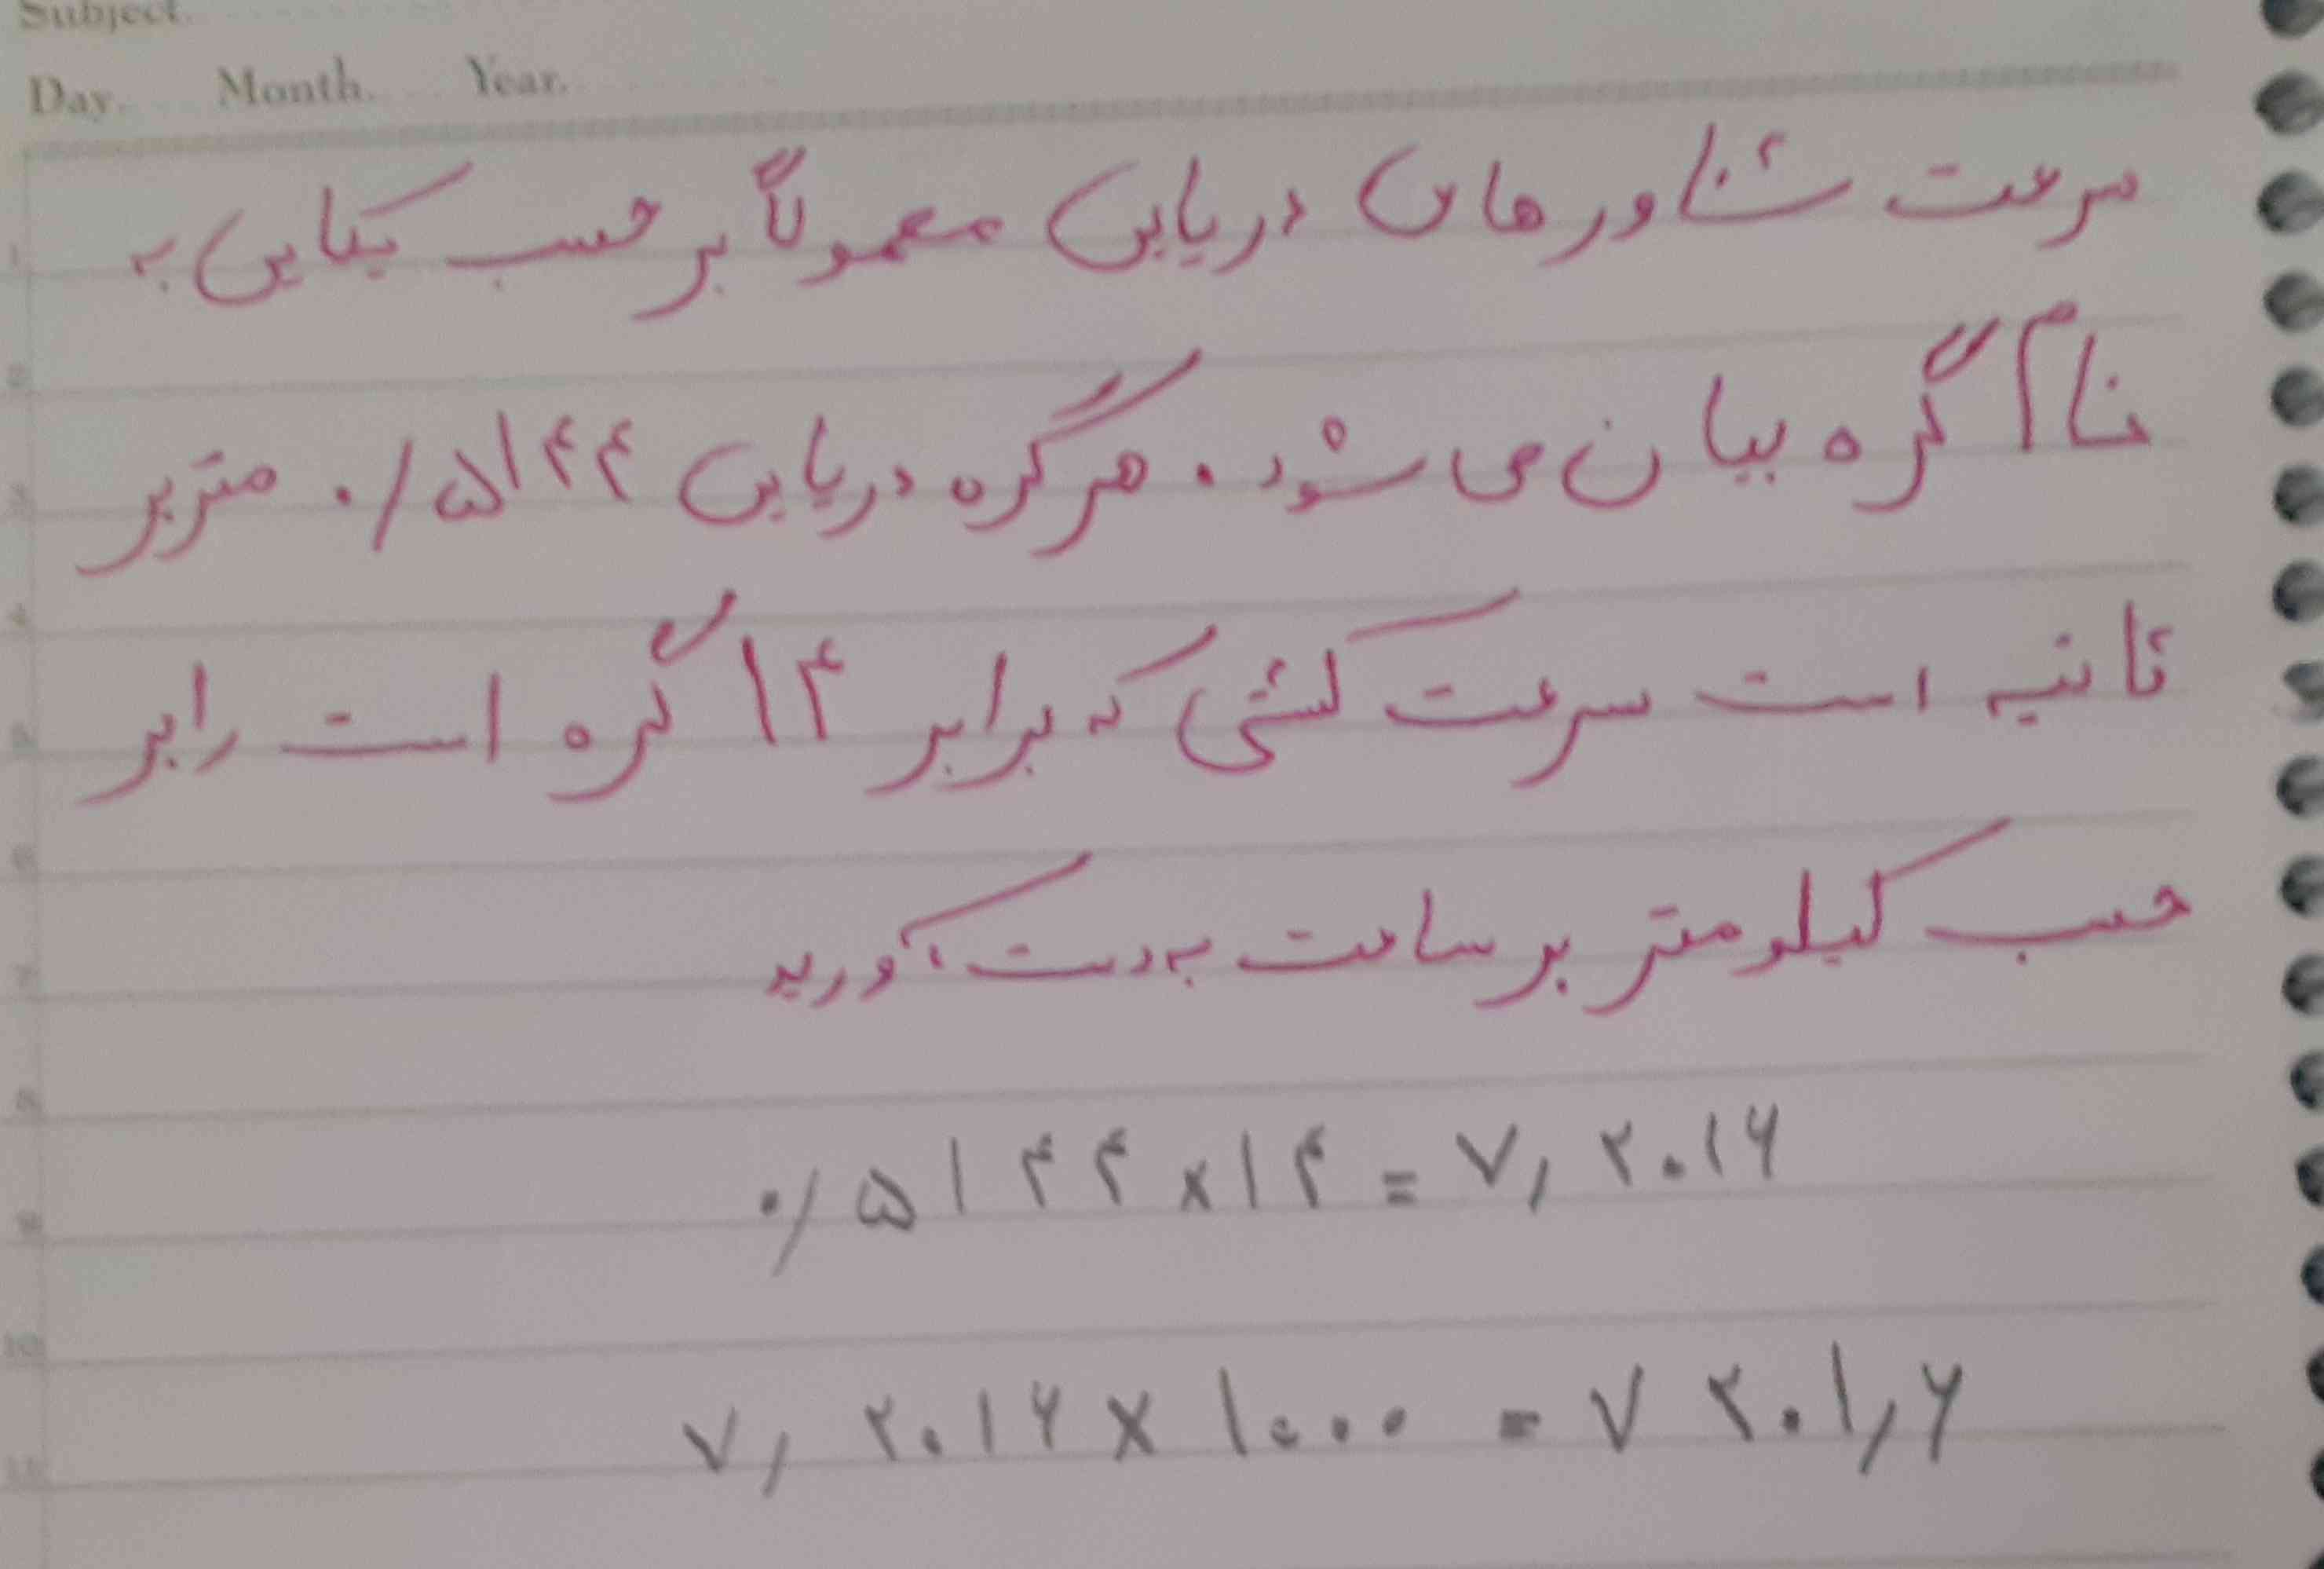 Subject.
Day. Month. Year.
سرعت شناورهای دریایی معمولاً بر حسب یکایی به
نام گره بیان می شود. هر گره دریایی ۰/۵۱۴۴ متر بر
ثانیه است سرعت کشتی که برابر ۱۴ گره است را بر
حسب کیلومتر بر ساعت به دست آورید
۰/۵۱۴۴×۱۴=۷,۲۰۱۶
۷,۲۰۱۶×۱۰۰۰=۷۲۰۱,۶